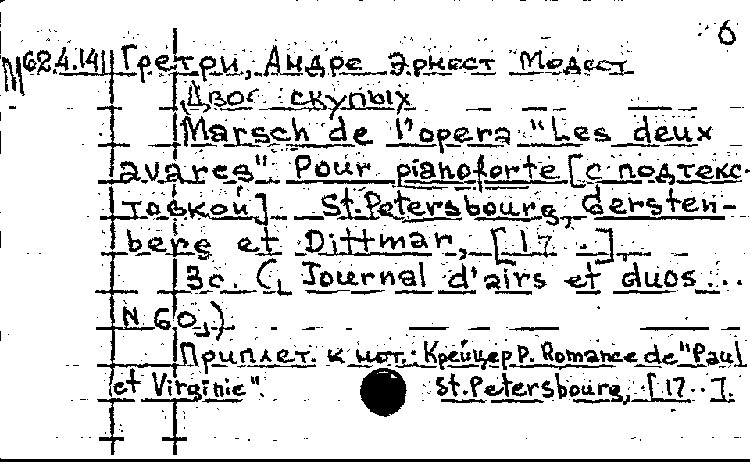 6
М62.4.141 Гретри, Андре Эрнест Модест
Двое скупых
Marsch de l'opera "Les deux
avares". Pour pianoforte [с подтекс-
товкой]. St.Petersbourg, Gersten-
berg et Dittmar, [17 . .],
3 с. (Journal d'airs et duos...
N 60.)
Приплет. к нот.: Крейцер Р. Romance de "Paul
et Virginie". St.Petersbourg, [17..].